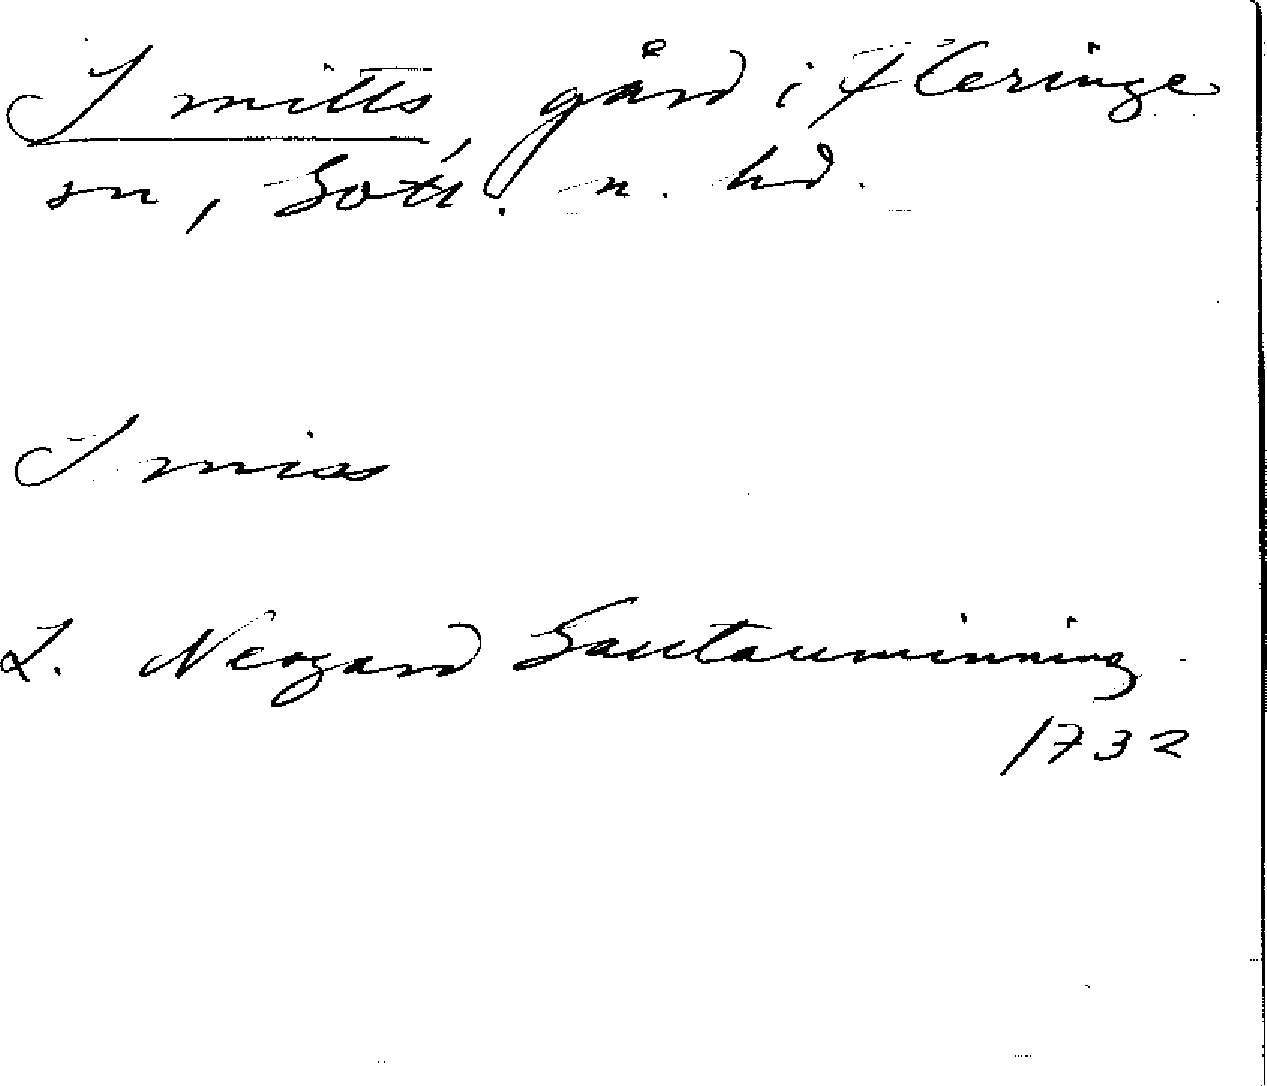 Smitts, gård i Fleringe
sn, Gotl. n. hd.
Smiss
L. Neogard Gautauminning
1732